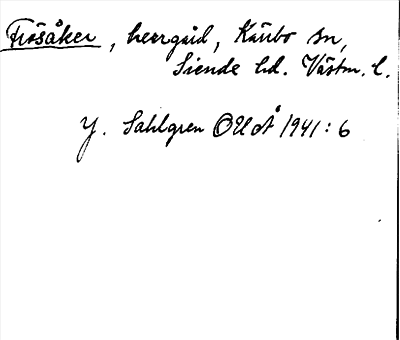 Frösåker, herrgård, Kärbo sn,
Siende hd. Västm. l.
J. Sahlgren OUÅ 1941: 6